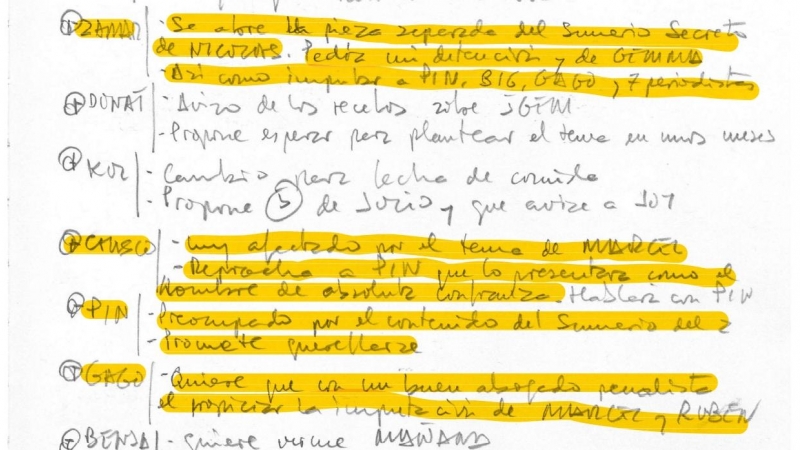 + ZAMAR - Se abre la pieza separada del Sumario Secreto
de NICOLAS. Pedirá mi detención y de GEMMA
- Así como imputar a PIN, BIG, GAGO y 7 periodistas
+ DONAT - Aviza de los recelos sobre JGEM
- Propone esperar para plantear el tema en unos meses
+ KOZ - Cambio para fecha de comida
- Propone 5 de JULIO y que avize a
+ CHASCO - muy afectado por el tema de MARCEL
- Reprocha a PIN que lo presentara como el
hombre de absoluta confianza. Hablará con PIN
+ PIN - Preocupado por el contenido del Sumario del 2
- Promete querellarse
+ GAGO - Quiere que con un buen abogado penalista
el propiciar la imputación de MARCEL y RUBEN
+ BENJA - quiere verme MAÑANA